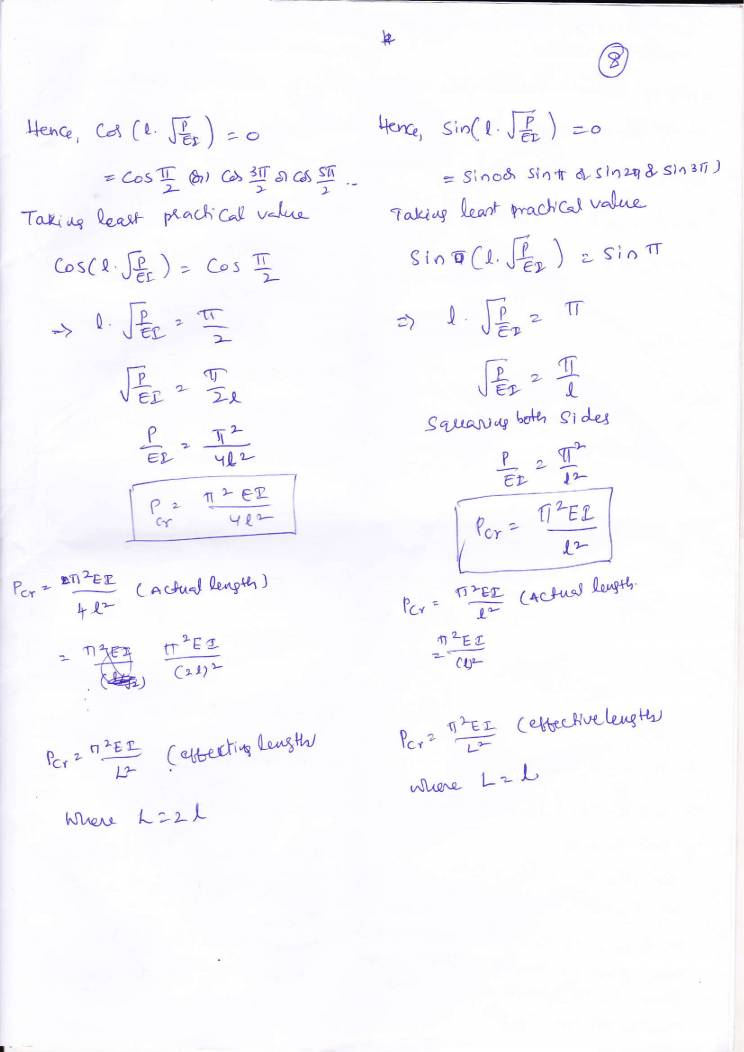 8
Hence, Cos (l.√(P/EI)) = 0
= Cos π/2 (or) Cos 3π/2 or Cos 5π/2 ...
Taking least practical value
Cos(l.√(P/EI)) = Cos π/2
=> l.√(P/EI) = π/2
√(P/EI) = π/2l
P/EI = π²/4l²
Pcr = π²EI/4l²
Pcr = π²EI/4l² (Actual length)
= π²EI/(2l)²
Pcr = π²EI/L² (effecting length)
where L = 2l
Hence, Sin(l.√(P/EI)) = 0
= Sin 0 or Sin π or Sin 2π or Sin 3π)
Taking least practical value
Sin (l.√(P/EI)) = Sin π
=> l.√(P/EI) = π
√(P/EI) = π/l
Squaring both sides
P/EI = π²/l²
Pcr = π²EI/l²
Pcr = π²EI/l² (Actual length.
= π²EI/(l)²
Pcr = π²EI/L² (effective length)
where L = l